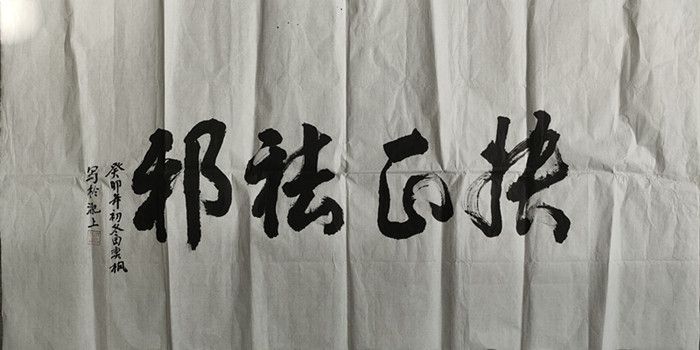 扶正祛邪
癸卯年初冬田奥枫
写於池上